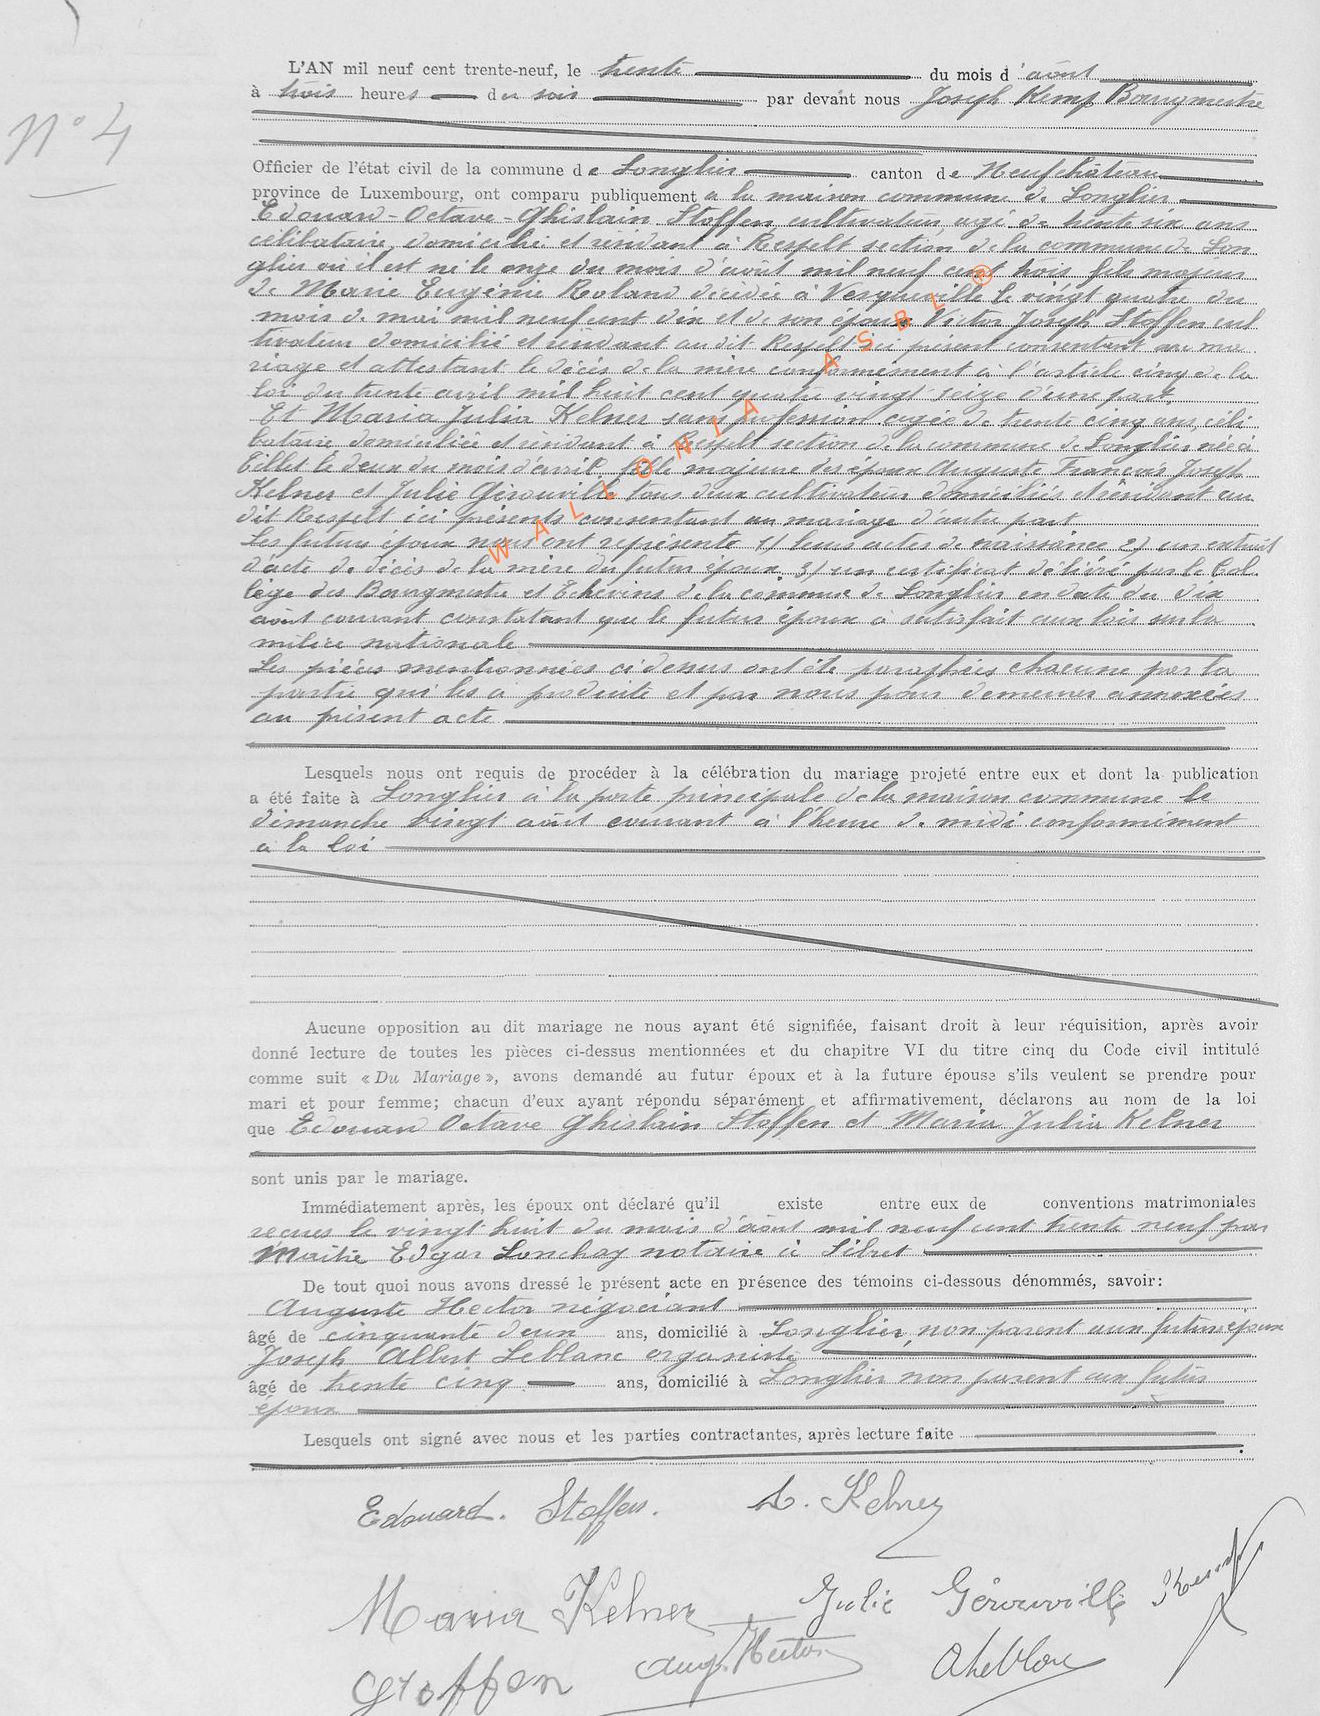 N° 4
L'AN mil neuf cent trente-neuf, le trente du mois d'août
à trois heures du soir par devant nous Joseph Kemp Bourgmestre
Officier de l'état civil de la commune de Longlier canton de Neufchâteau
province de Luxembourg, ont comparu publiquement a la maison commune de Longlier
Edouard-Octave-Ghislain Stoffen cultivateur agé de trente six ans
célibataire, domicilié et résidant à Respelt section de la commune de Lon
glier où il est né le onze du mois d'août mil neuf cent trois, fils majeur
de Marie Eugénie Roland décédée à Vesqueville le vingt quatre du
mois de mai mil neuf cent dix et de son époux Victor Joseph Stoffen cul
tivateur domicilié et résidant au dit Respelt ici présent consentant au ma
riage et attestant le décès de la mère conformément à l'article cinq de la
loi du trente avril mil huit cent quatre vingt seize d'une part
Et Maria Julia Kelner sans profession agée de trente cinq ans, céli
bataire domiciliée et résidant à Respelt section de la commune de Longlier née à
Tillet le deux du mois d'avril fille majeure des époux Auguste François Joseph
Kelner et Julie Gérouville tous deux cultivateurs domiciliés et résidant au
dit Respelt ici présents consentant au mariage d'autre part
Les futurs époux nous ont représenté 1) leurs actes de naissance 2) un extrait
d'acte de décès de la mère du futur époux 3) un certificat délivré par le Col
lège des Bourgmestre et Echevins de la commune de Longlier en date du dix
août courant constatant que le futur époux a satisfait aux lois sur la
milice nationale
Les pièces mentionnées ci dessus ont été paraphées chacune par la
partie qui les a produite et par nous pour demeurer annexées
au présent acte
Lesquels nous ont requis de procéder à la célébration du mariage projeté entre eux et dont la publication
a été faite à Longlier à la porte principale de la maison commune le
dimanche vingt août courant à l'heure de midi conformément
a la loi
Aucune opposition au dit mariage ne nous ayant été signifiée, faisant droit à leur réquisition, après avoir
donné lecture de toutes les pièces ci-dessus mentionnées et du chapitre VI du titre cinq du Code civil intitulé
comme suit « Du Mariage », avons demandé au futur époux et à la future épouse s'ils veulent se prendre pour
mari et pour femme; chacun d'eux ayant répondu séparément et affirmativement, déclarons au nom de la loi
que Edouard Octave Ghislain Stoffen et Maria Julia Kelner
sont unis par le mariage.
Immédiatement après, les époux ont déclaré qu'il existe entre eux de conventions matrimoniales
recues le vingt huit du mois d'août mil neuf cent trente neuf par
Maître Edgar Lonchay notaire à Sibret
De tout quoi nous avons dressé le présent acte en présence des témoins ci-dessous dénommés, savoir:
Auguste Hector négociant
âgé de cinquante deux ans, domicilié à Longlier, non parent aux futurs époux
Joseph Albert Leblanc organiste
âgé de trente cinq ans, domicilié à Longlier non parent aux futurs
époux
Lesquels ont signé avec nous et les parties contractantes, après lecture faite
Edouard. Stoffen. A. Kelner
Maria Kelner Julie Gérouville Kemp
Stoffen Aug. Hector A Leblanc
WALLONIA ASBL ®